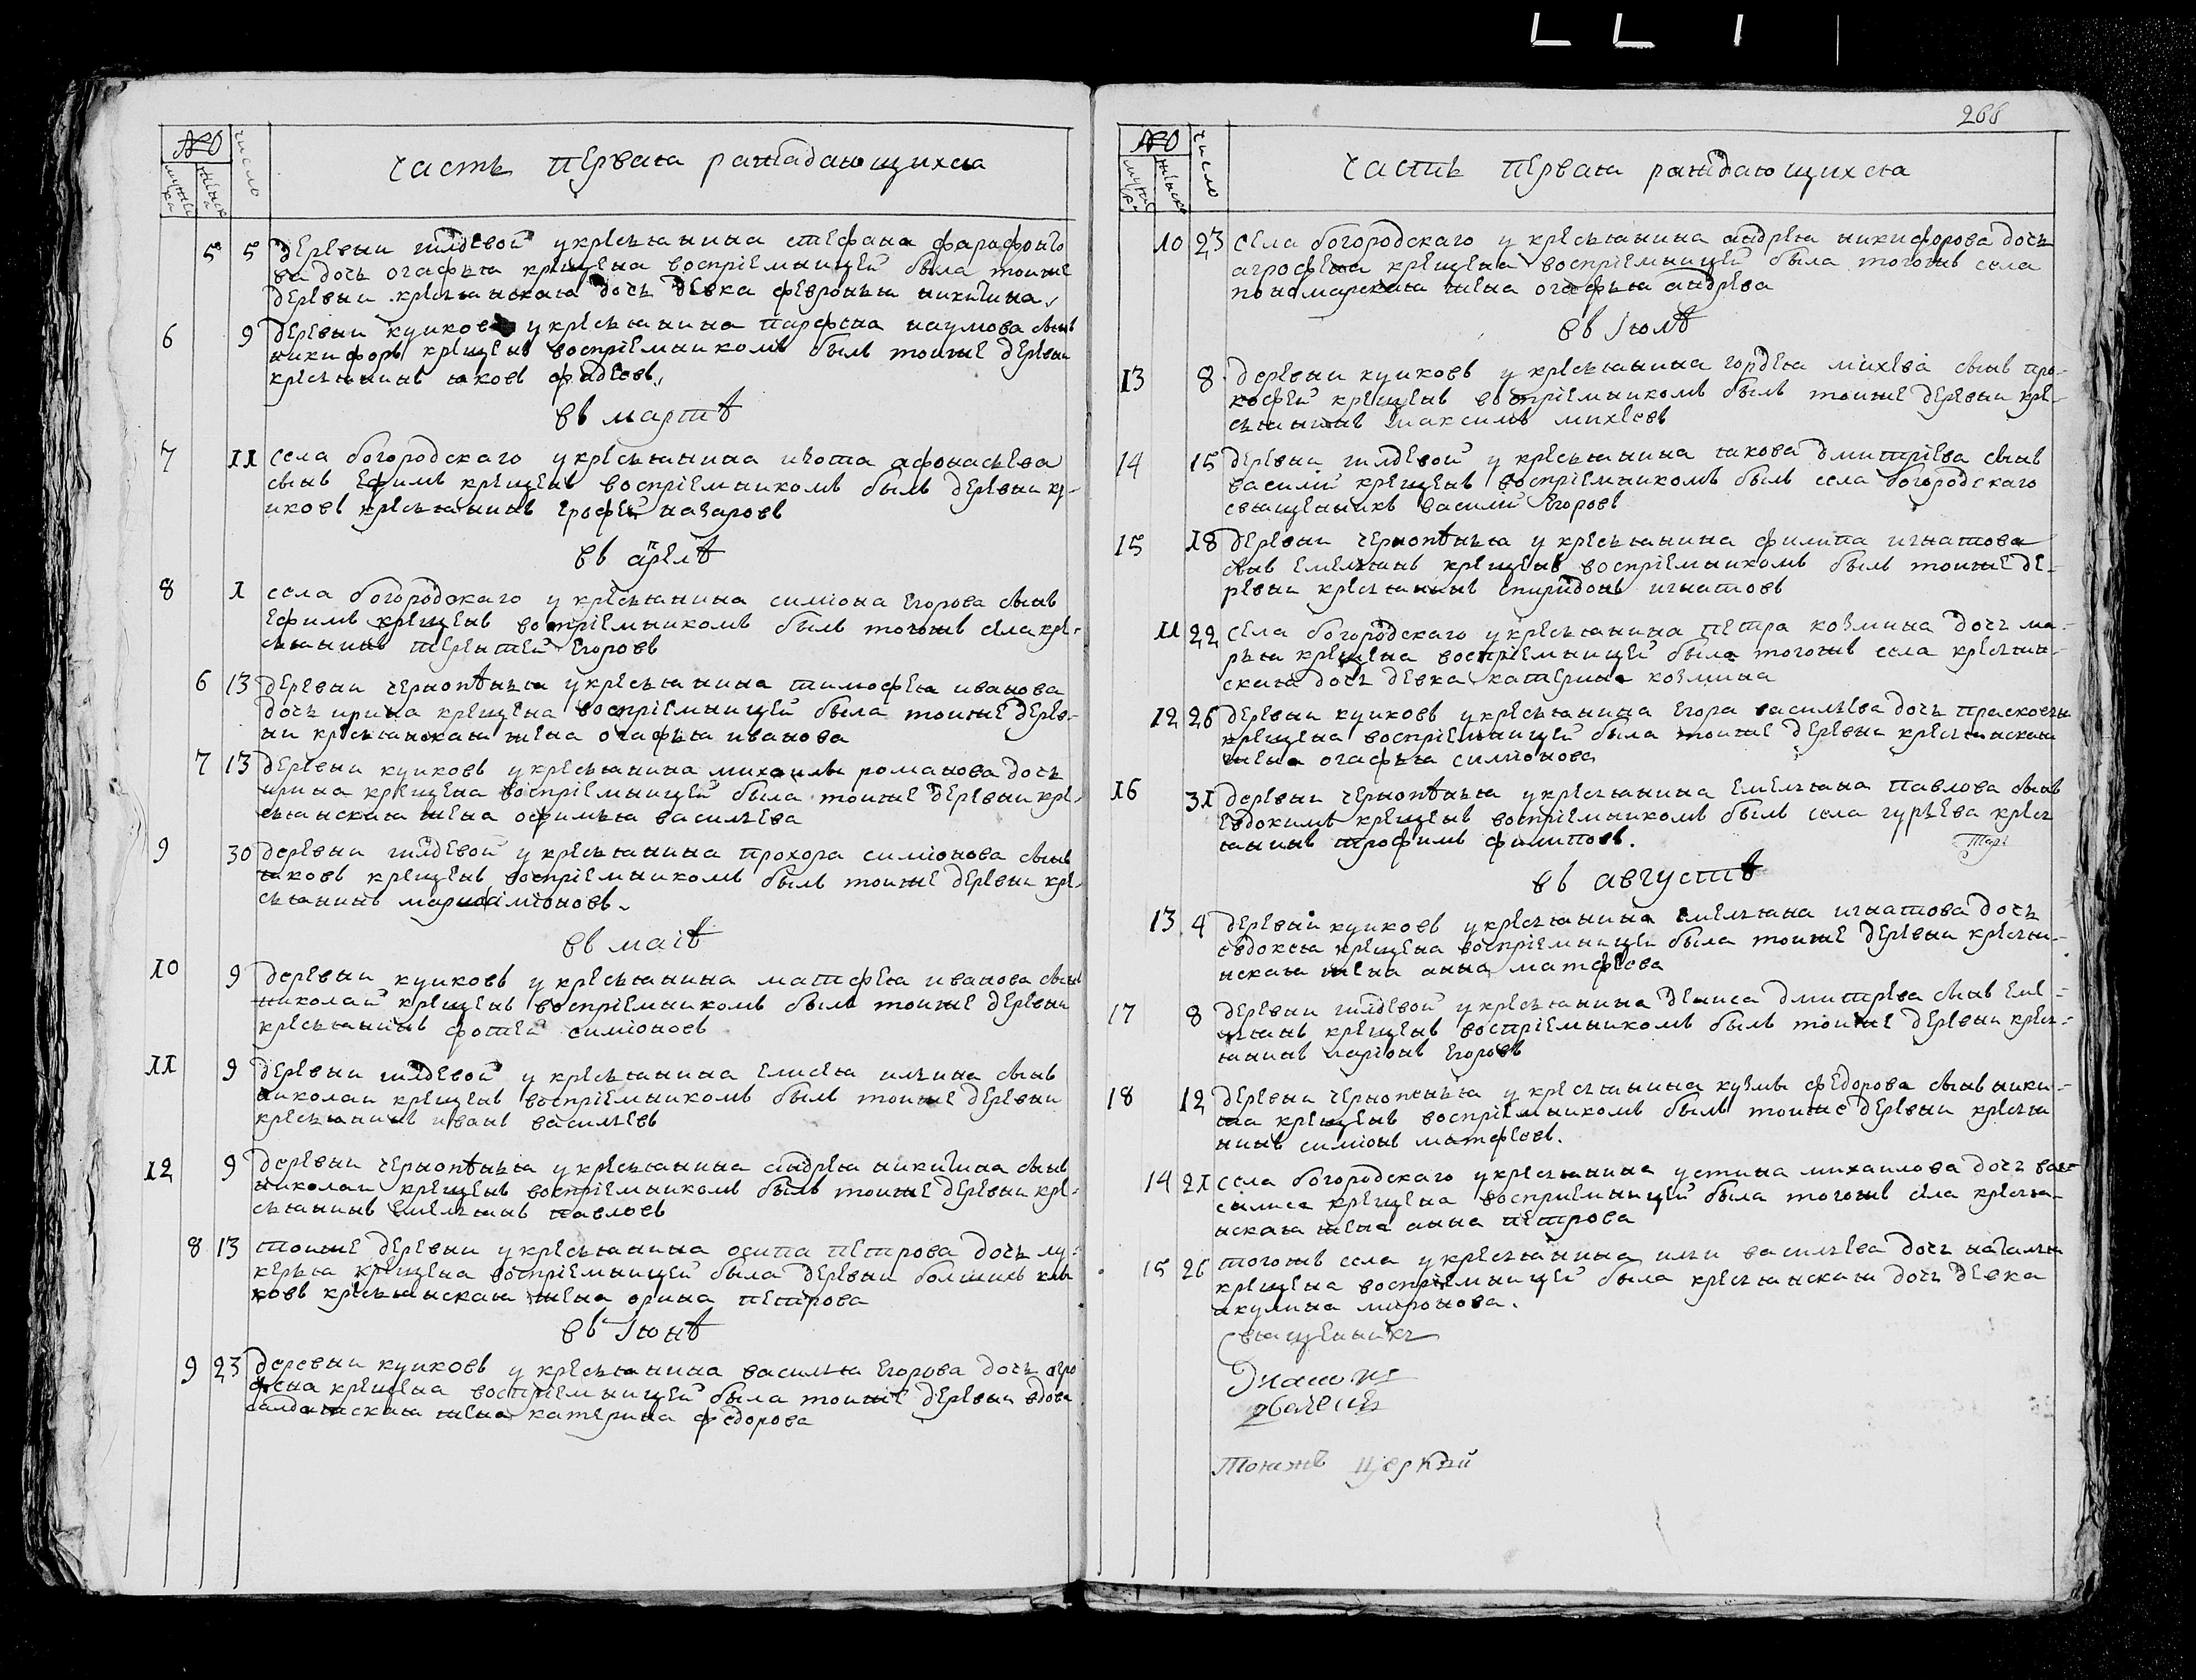 №
мужеска
женска
число
часть первая раждающихся
5 5 деревни гилдевой у крестьянина стефана фарафоно
ва дочь огафья крещена восприемницей была тоиже
деревни крестьянская дочь девка февронья никитина
6 9 деревни куиковъ у крестьянина парфена наумова сынъ
никифоръ крещенъ восприемникомъ былъ тоиже деревни
крестьянинъ яковъ фадеевъ
въ мартѣ
7 11 села богородскаго у крестьянина изота афонасьева
сынъ ефимъ крещенъ восприемникомъ былъ деревни ку-
иковъ крестьянинъ ерофей назаровъ
въ апрелѣ
8 1 села богородскаго у крестьянина симиона егорова сынъ
ефимъ крещенъ восприемникомъ былъ тогожъ села кре-
стьянинъ терентей егоровъ
6 13 деревни чернопѣнья у крестьянина тимофея иванова
дочь ирина крещена восприемницей была тоиже дерев-
ни крестьянская жена огафья иванова
7 13 деревни куиковъ у крестьянина михаилы романова дочь
ирина крещена восприемницей была тоиже деревни кре-
стьянская жена офимья васильева
9 30 деревни гилдевой у крестьянина прохора симионова сынъ
яковъ крещенъ восприемникомъ былъ тоиже деревни кре-
стьянинъ симионовъ
въ маiѣ
10 9 деревни куиковъ у крестьянина матфея иванова сынъ
николай крещенъ восприемникомъ былъ тоиже деревни
крестьянинъ фотей симионовъ
11 9 деревни гилдевой у крестьянина елисея ильина сынъ
николаи крещенъ восприемникомъ былъ тоиже деревни
крестьянинъ иванъ васильевъ
12 9 деревни чернопѣнья у крестьянина андрея никитина сынъ
николаи крещенъ восприемникомъ былъ тоиже деревни кре-
стьянинъ емельянъ павловъ
8 13 тоиже деревни у крестьянина осипа петрова дочь лу-
керья крещена восприемницей была деревни болшихъ
крестьянская жена орина петрова
въ iюнѣ
9 23 деревни куиковъ у крестьянина василья егорова дочь агро
фена крещена восприемницей была тоиже деревни вдова
салдатская жена катерина федорова
268
№
мужеска
женска
число
часть первая раждающихся
10 23 села богородскаго у крестьянина андрея никифорова дочь
агрофена крещена восприемницей была тогожъ села
пономарская жена огафья андрева
въ iюлѣ
13 8 деревни куиковъ у крестьянина гордея михева сынъ про-
кофей крещенъ восприемникомъ былъ тоиже деревни кре-
стьянинъ максимъ михеевъ
14 15 деревни гилдевой у крестьянина якова дмитриева сынъ
василий крещенъ восприемникомъ былъ села богородскаго
священникъ василий егоровъ
15 18 деревни чернопѣнья у крестьянина филипа игнатова
сынъ емельянъ крещенъ восприемникомъ былъ тоиже де-
ревни крестьянинъ спиридонъ игнатовъ
11 22 села богородскаго у крестьянина петра козмина дочь ма-
рья крещена восприемницей была тогожъ села крестьян-
ская дочь девка катерина козмина
12 26 деревни куиковъ у крестьянина егора васильева дочь прасковья
крещена восприемницей была тоиже деревни крестьянская
жена огафья симионова
16 31 деревни чернопѣнья у крестьянина емельяна павлова сынъ
евдокимъ крещенъ восприемникомъ былъ села гурьева кресть
янинъ трофимъ филиповъ.
въ августѣ
13 4 деревни куиковъ у крестьянина емельяна игнатова дочь
евдокея крещена восприемницей была тоиже деревни крестья-
нская жена анна матфеева
17 8 деревни гилдевой у крестьянина дениса дмитрева сынъ еме-
льянъ крещенъ восприемникомъ былъ тоиже деревни кресть-
янинъ ларионъ егоровъ
18 12 деревни чернопенья у крестьянина кузмы федорова сынъ ники-
та крещенъ восприемникомъ былъ тоиже деревни крестья
нинъ симионъ матфеевъ.
14 21 села богородскаго у крестьянина устина михаилова дочь ва-
силиса крещена восприемницей была тогожъ села крестья-
нская жена анна петрова
15 26 тогожъ села у крестьянина ильи васильева дочь наталья
крещена восприемницей была крестьянская дочь девка
акулина миронова.
священникъ
Тояжъ церкви